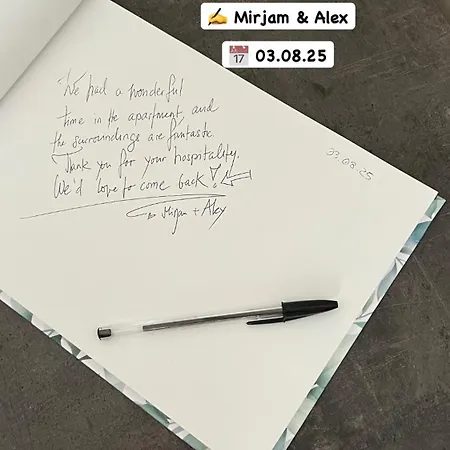 ✍️ Mirjam & Alex
📅 03.08.25
We had a wonderful
time in the apartment, and
the surroundings are fantastic.
Thank you for your hospitality.
We'd love to come back!
Mirjam + Alex
03.08.25